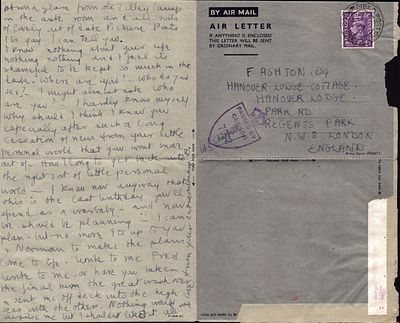 in the ante room and all sorts
of lovely out of date Picture Posts
to you I can tell you.
I know nothing about your life
nothing nothing and I feel it
shameful to be kept so much in the
dark. Where are you? — who do you
see? I might almost ask who
are you? — I hardly know myself
why should I think I know you
especially after such a long
cessation of news from your little
personal world that you wont move
out of. How I long to get back into
the right sort of little personal
world — I know now anyway that
this is the last birthday you'll
spend as a warbaby — and now
we should be planning — I can
plan — but no more its up to you
Norman to make the plans
come to life. Write to me Fred
write to me. or have you taken
the final broom the great
sent me off deck into the high
seas with the other. Nothing would
surprise me but I shouldn't
BY AIR MAIL
AIR LETTER
IF ANYTHING IS ENCLOSED
THIS LETTER WILL BE SENT
BY ORDINARY MAIL.
F. ASHTON. ESQ
HANOVER LODGE COTTAGE.
HANOVER LODGE.
PARK RD
REGENTS PARK
N.W.8. LONDON
ENGLAND
PASSED BY